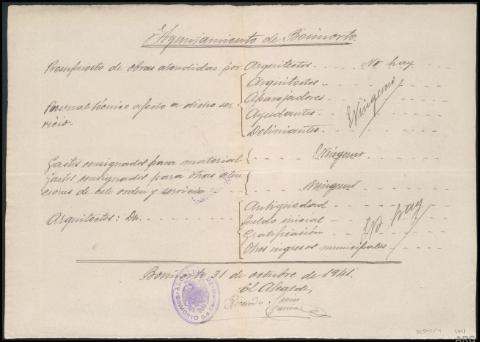 Ayuntamiento de Boimorto
Presupuesto de obras atendidas por Arquitectos. . . . . No hay
Personal técnico afecto a dicho ser-
vicio.
Arquitectos. . . .
Aparejadores. . . .
Ayudantes. . . .
Delineantes. . . .
Ninguno
Gastos consignados para material . . . . Ninguno
Gastos consignados para otras aten-
ciones de este orden y servicio . . . . Ninguno
Arquitectos: Dn. . . . .
Antigüedad . . . .
Sueldo inicial . . . .
Gratificación . . . .
Otros ingresos municipales . . . .
No hay
Boimorto 31 de octubre de 1941.
El Alcalde,
Ricardo